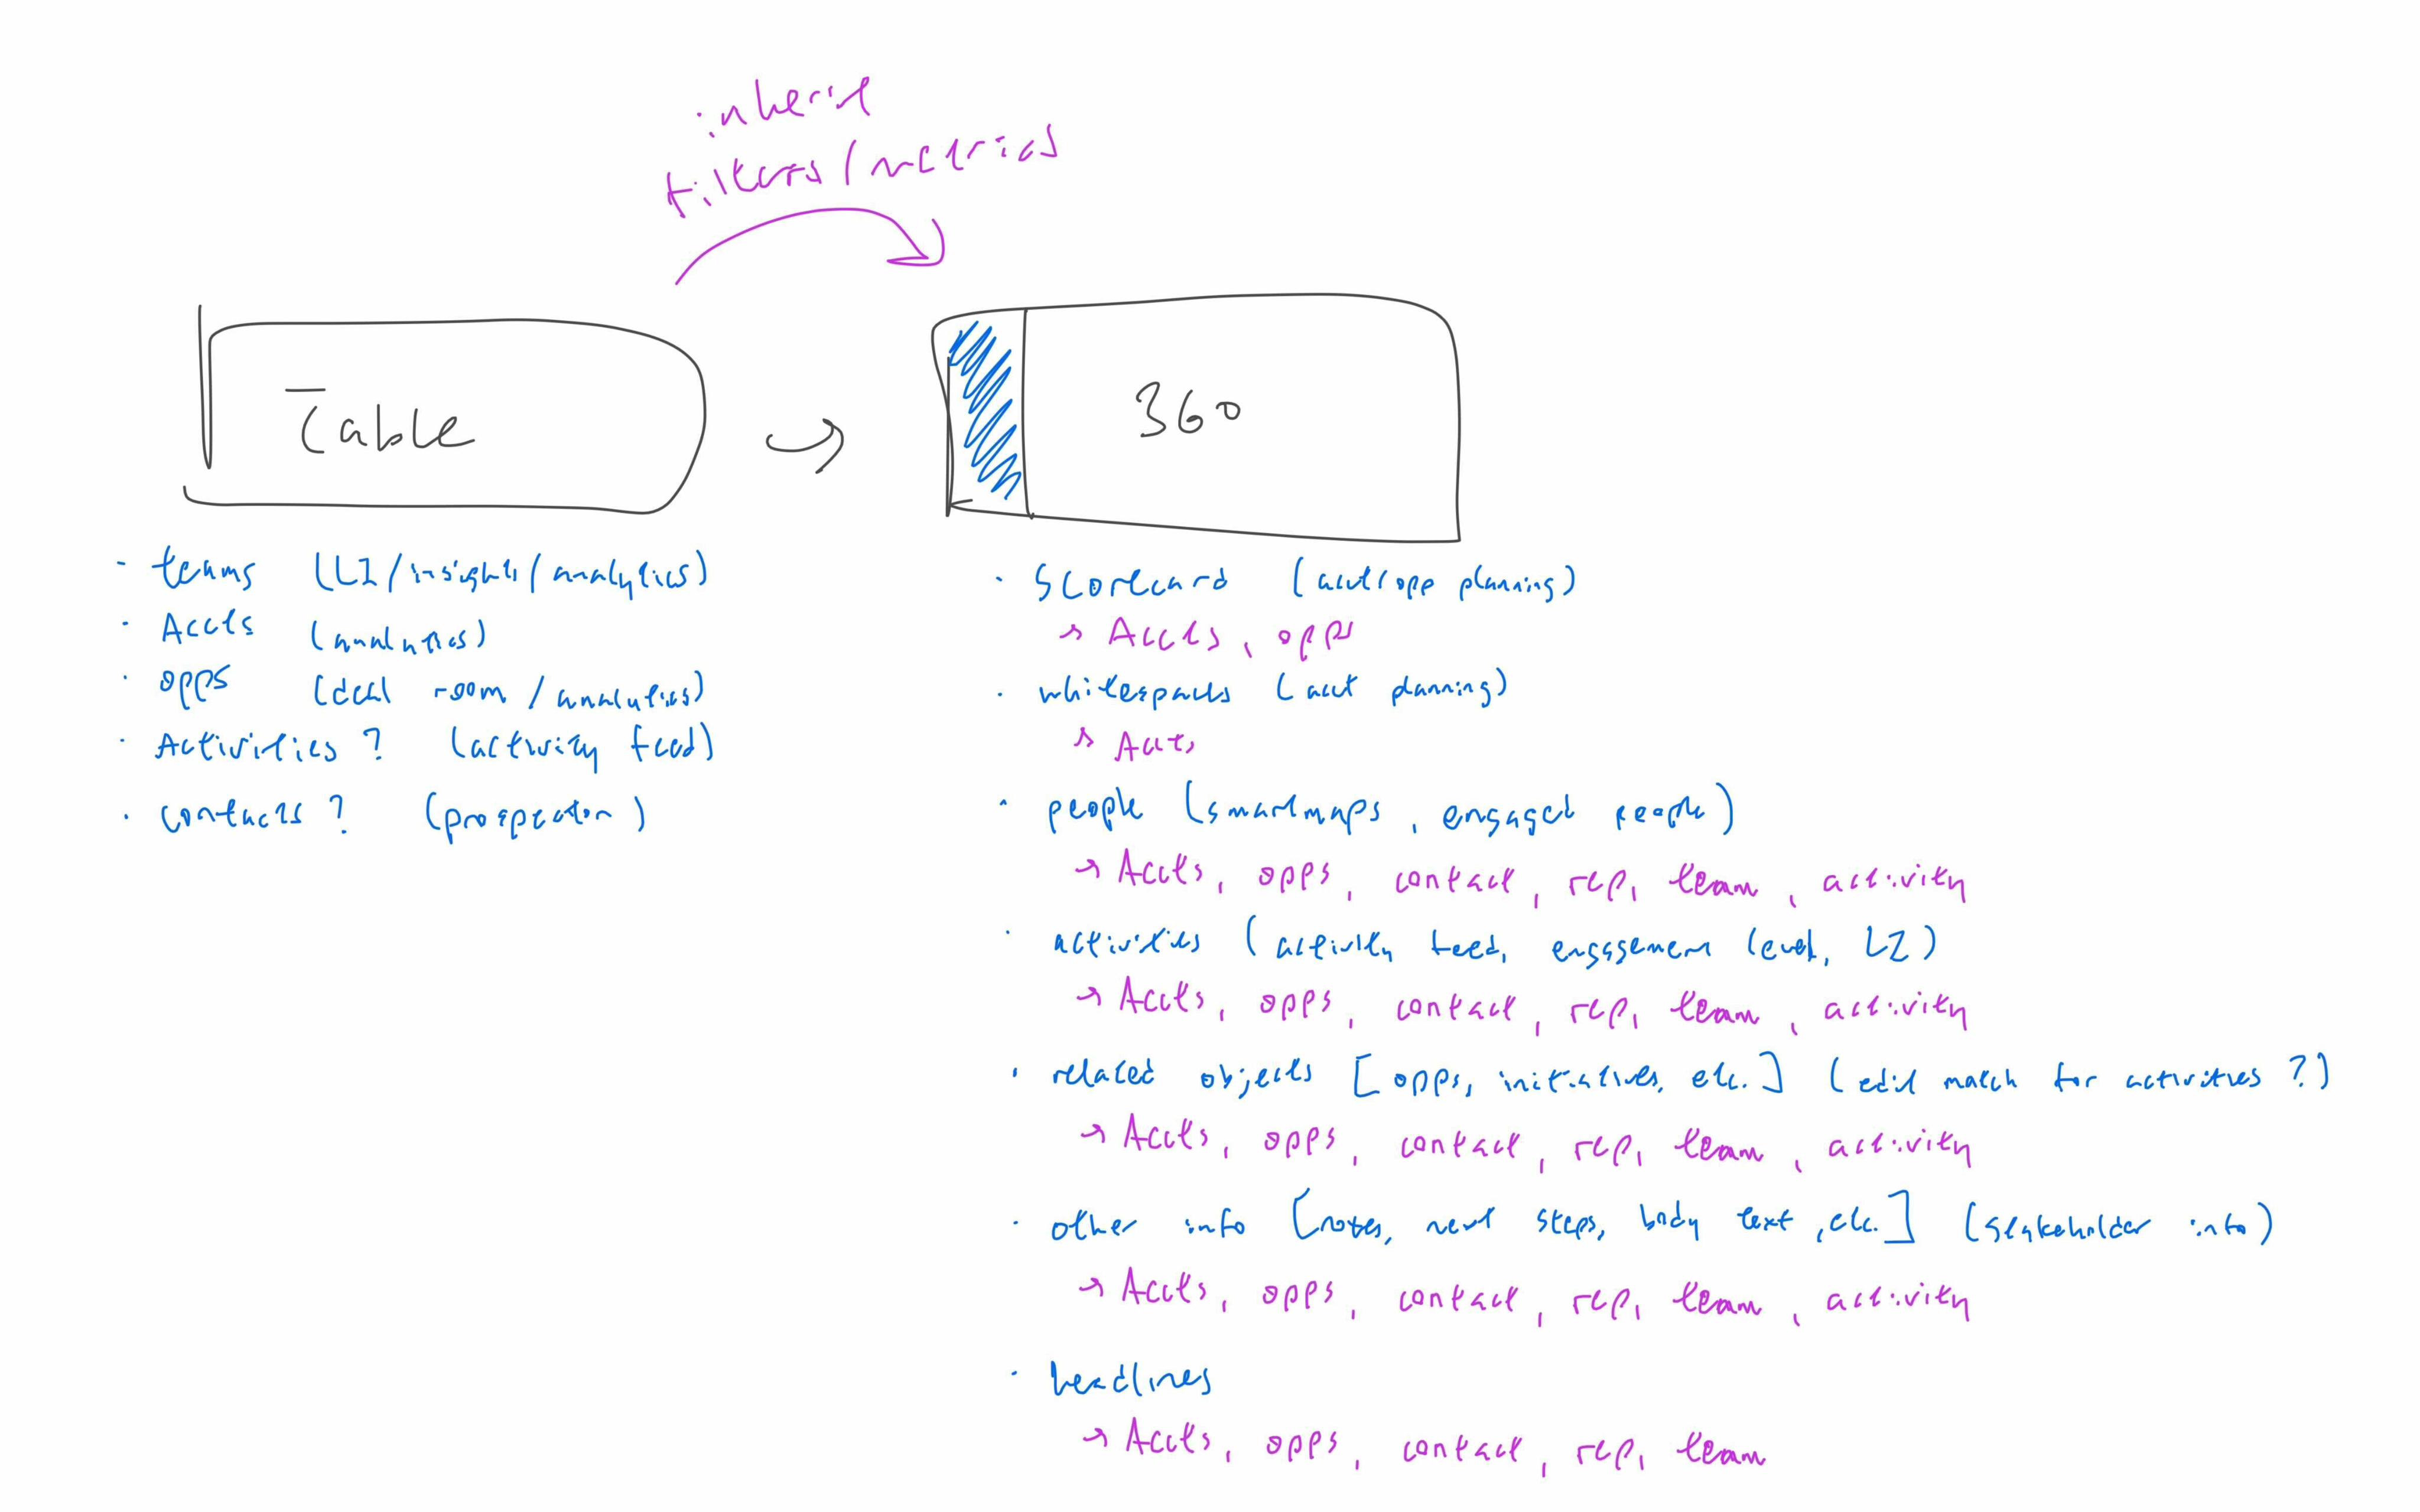 inherit
filters/metrics
Table
360
· teams (LI/insights/analytics)
· Accts (analytics)
· opps (deal room/analytics)
· Activities? (activity feed)
· contacts? (prospector)
· Scorecard (acct/opp planning)
→ Accts, opps
· whitespaces (acct planning)
→ Accts
· people (smartmaps, engaged people)
→ Accts, opps, contact, rep, team, activity
· activities (activity feed, engagement level, LI)
→ Accts, opps, contact, rep, team, activity
· related objects [opps, initiatives, etc.] (edit match for activities?)
→ Accts, opps, contact, rep, team, activity
· other info [notes, next steps, body text, etc.] (stakeholder info)
→ Accts, opps, contact, rep, team, activity
· headlines
→ Accts, opps, contact, rep, team